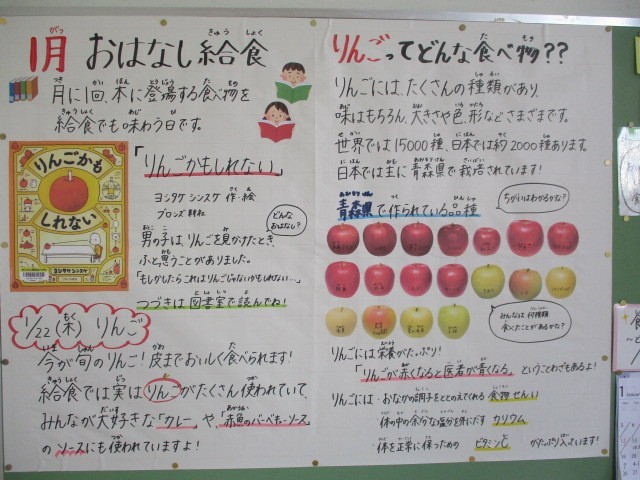 1月 おはなし給食
月に1回、本に登場する食べ物を
給食でも味わう日です。
りんごかも
しれない
ヨシタケシンスケ
「りんごかもしれない」
ヨシタケ シンスケ 作・絵
ブロンズ新社
どんな
おはなし?
男の子は、りんごを見かけたとき、
ふと思うことがありました。
「もしかしたらこれはりんごじゃないかもしれない…」
つづきは図書室で読んでね!
1/22(木) りんご
今が旬のりんご!皮までおいしく食べられます!
給食では実はりんごがたくさん使われていて、
みんなが大好きな「カレー」や、「赤魚のバーベキューソース」
のソースにも使われていますよ!
りんごってどんな食べ物??
りんごには、たくさんの種類があり、
味はもちろん、大きさや色、形などさまざまです。
世界では15000種、日本では約2000種あります。
日本では主に青森県で栽培されています!
青森県で作られている品種
ちがいはわかるかな?
みんなは何種類
食べたことがあるかな?
りんごには栄養がたっぷり!
「りんごが赤くなると医者が青くなる」ということわざもあるよ!
りんごには・おなかの調子をととのえてくれる食物せんい
体の中の余分な塩分を外にだす カリウム
体を正常に保つための ビタミンC がたっぷり入っています!